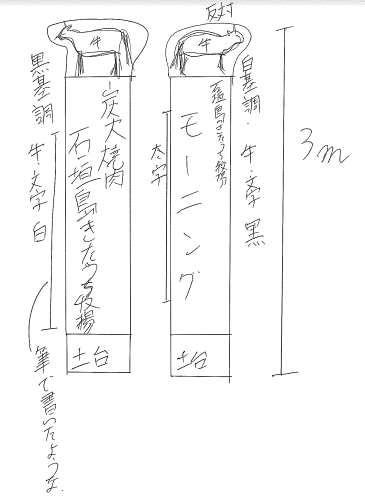 反対
牛
牛
黒基調
牛・文字 白
筆で書いたような
炭火焼肉
石垣島きたうち牧場
石垣島きたうち牧場
モーニング
太字
白基調・牛・文字 黒
3m
土台
土台